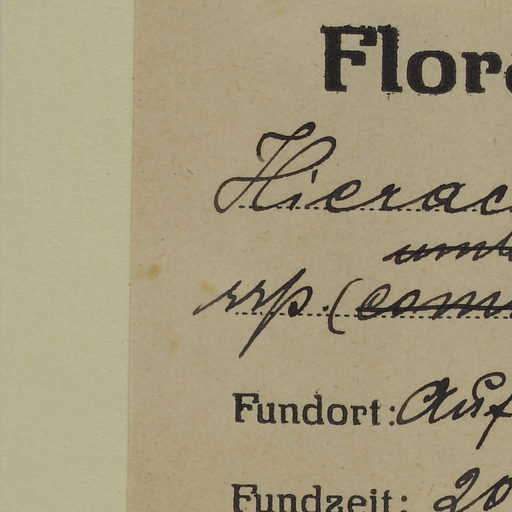 Flora
Hierac
umb
ssp. (com
Fundort: Auf
Fundzeit: 20